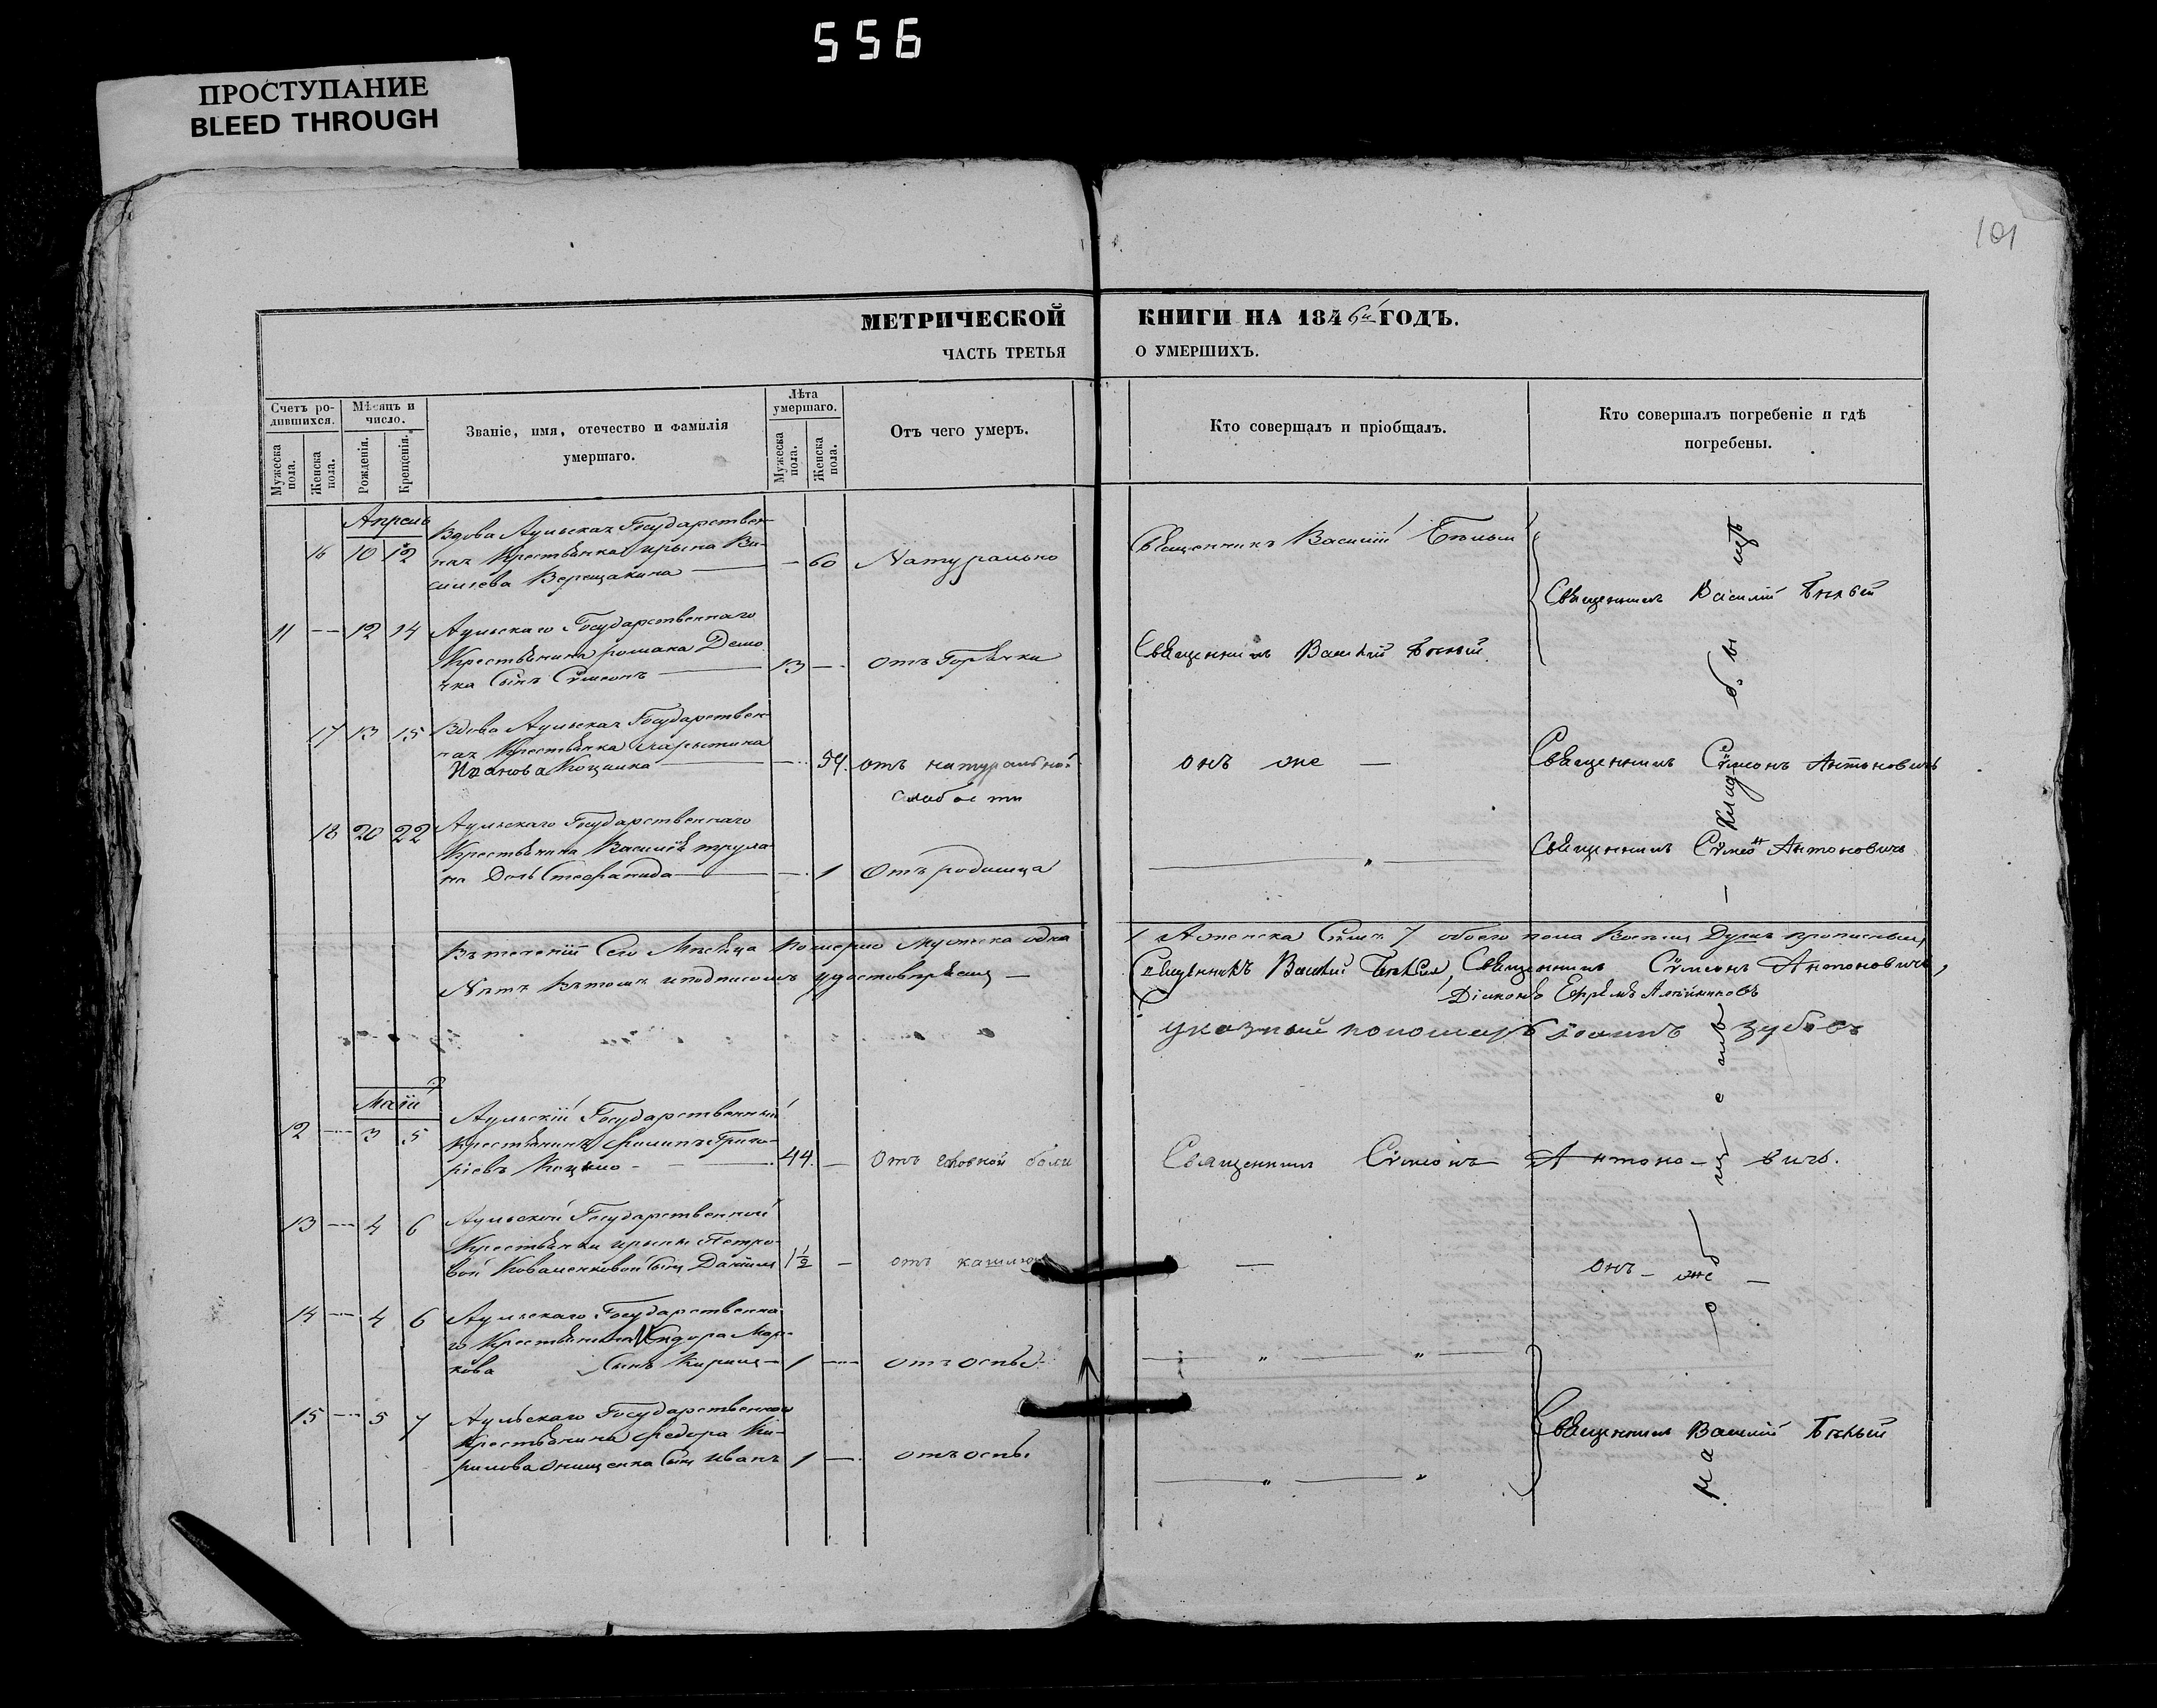 556
ПРОСТУПАНИЕ
BLEED THROUGH
101
МЕТРИЧЕСКОЙ КНИГИ НА 1846й ГОДЪ.
ЧАСТЬ ТРЕТЬЯ О УМЕРШИХЪ.
Счетъ родившихся.
Мужеска пола.
Женска пола.
Мѣсяцъ и число.
Рожденія.
Крещенія.
Званіе, имя, отечество и фамилія умершаго.
Лѣта умершаго.
Мужеска пола.
Женска пола.
Отъ чего умеръ.
Кто совершалъ и пріобщалъ.
Кто совершалъ погребеніе и гдѣ погребены.
Апрель
Вдова Аульская Государствен-
16 10 12 ная Крестьянка Ирына Ва- — 60 Натурально Священникъ Василій Бѣлый
сильева Верещакина —
Священникъ Василій Бѣлый
11 — 12 14 Аульскаго Государственнаго
Крестьянина Романа Демо
чка Сынъ Сѵмеонъ — 13 — отъ Горячки Священникъ Василій Бѣлый
17 13 15 Вдова Аульская Государствен-
ная Крестьянка
Иванова Коцшка — 54. отъ натуральной слабости онъ же — Священникъ Сѵмеонъ Антоновичъ
18 20 22 Аульскаго Государственнаго
Крестьянина Василія
на Дочь Стефанида — 1 Отъ родимца — " — Священникъ Сѵмеонъ Антоновичъ
Въ теченіи Сего Мѣсяца Померло Мужеска одна 1 Аженска Семь 7 обоего пола Восемь Душъ прописныхъ
Нѣтъ Вътомъ иподписомъ удостовѣряемъ — Священникъ Василій Бѣлый, Священникъ Сѵмеонъ Антоновичъ,
Діаконъ Ефремъ Алейниковъ
указный пономарь Іоаннъ Зубовъ
Маій
12 — 3 5 Аульскій Государственный
Крестьянинъ Филипъ Григо-
ріевъ — 44. — Отъ головной боли Священникъ Сѵмеонъ Антоно- вичъ.
13 — 4 6 Аульской Государственной
Крестьянки Ирыны Петро-
вой Коваленковой Сынъ Даніилъ 1½ — отъ кашлю — онъ — же —
14 — 4 6 Аульскаго Государственна-
го Крестьянина Мар-
кова Сынъ Кирилъ — 1 — отъ оспы — " — " —
15 — 5 7 Аульскаго Государственнаго
Крестьянина Федора Ки-
рилова Онищенка Сынъ Иванъ 1 — отъ оспы — " — " Священникъ Василій Бѣлый